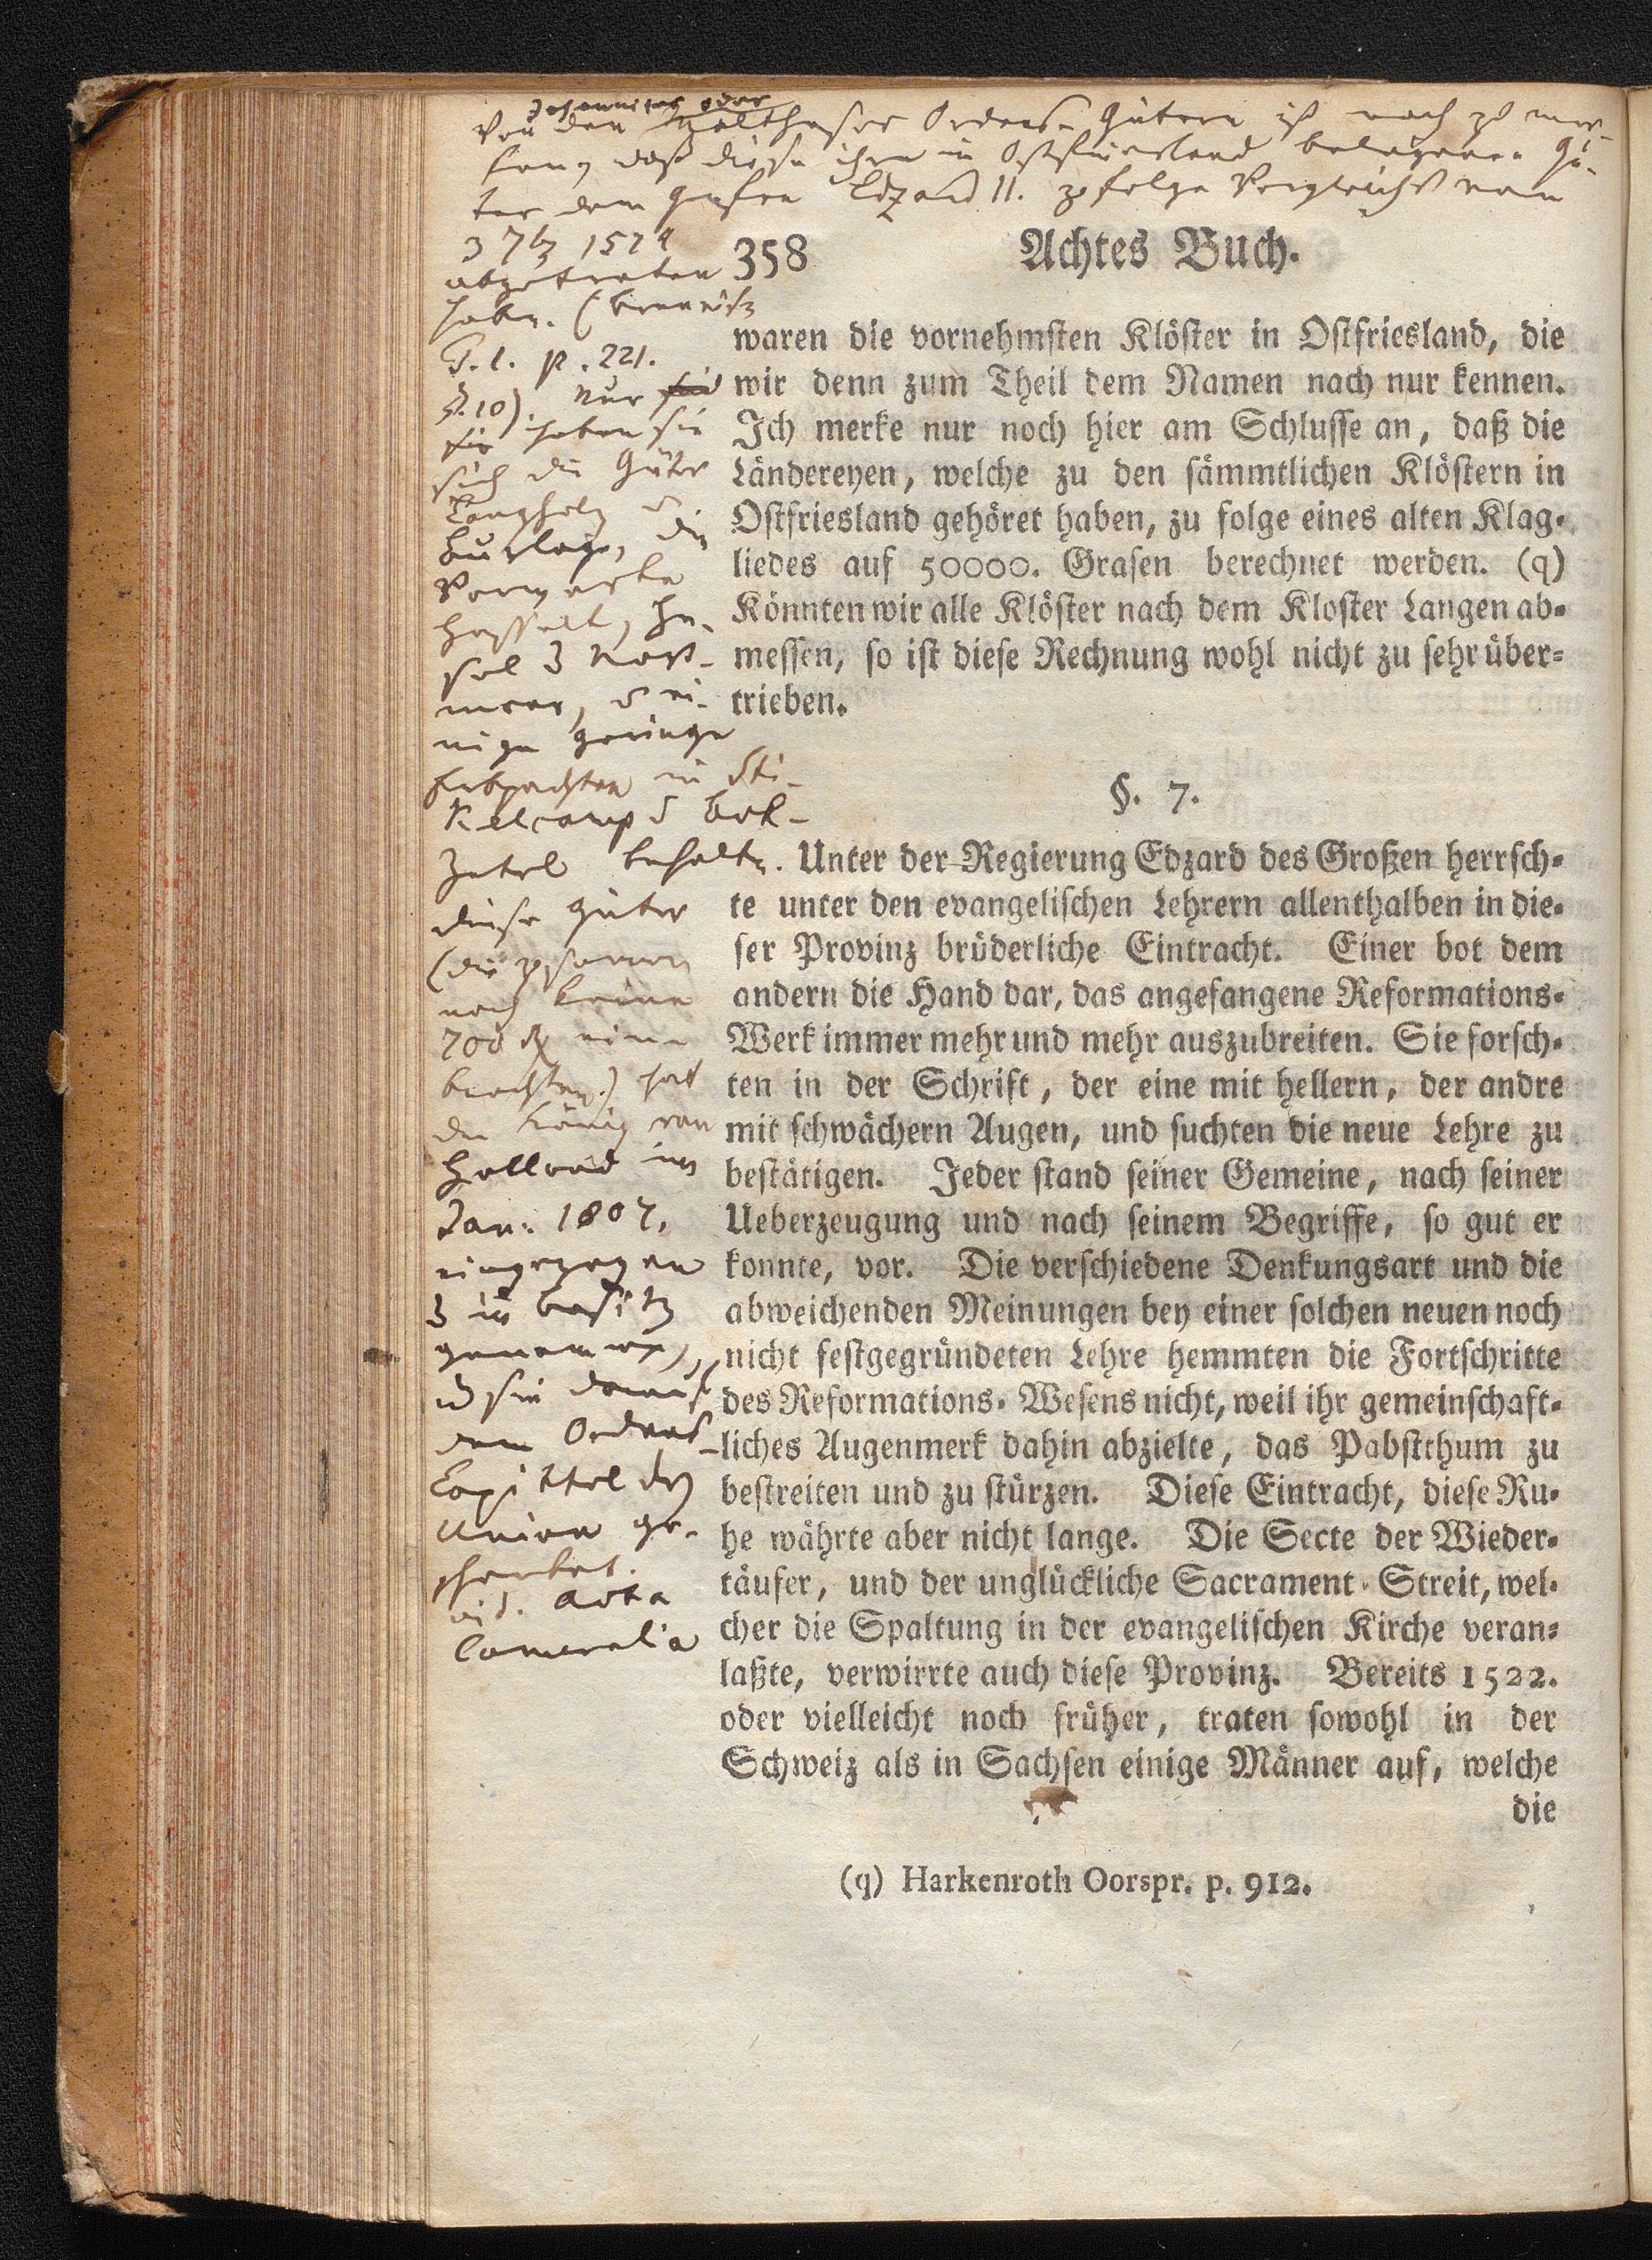 Johanniter oder
Von den Maltheser Ordens-Gütern ist noch zu mer-
ken, daß diese ihre in Ostfriesland belegenen Gü-
ter dem Grafen Edzard II. zufolge Vergleichs vom
3 7br 1574
abgetreten
haben. (Brenneisen
T. I. p. 221.
§. 10). Nur
haben sie
sich die Güter
Langholz u
Burlage, die
Vorwerke
Hasselt, Hesel
u
u ei-
nige geringe
Erbpachten in Sti-
kelcamp u Bok-
zetel behalten.
diese Güter
(die zusammen
noch keine
700 ein-
brachten) hat
der König von
Holland im
Jan: 1807.
eingezogen
u in Besitz
genommen,
u sie darauf
dem Ordens-
Capittel der
Union ge-
schenket.
vid. Acta
Cameralia
358 Achtes Buch.
waren die vornehmsten Klöster in Ostfriesland, die
wir denn zum Theil dem Namen nach nur kennen.
Ich merke nur noch hier am Schlusse an, daß die
Ländereyen, welche zu den sämmtlichen Klöstern in
Ostfriesland gehöret haben, zu folge eines alten Klag-
liedes auf 50000. Grasen berechnet werden. (q)
Könnten wir alle Klöster nach dem Kloster Langen ab-
messen, so ist diese Rechnung wohl nicht zu sehr über-
trieben.
§. 7.
Unter der Regierung Edzard des Großen herrsch-
te unter den evangelischen Lehrern allenthalben in die-
ser Provinz brüderliche Eintracht. Einer bot dem
andern die Hand dar, das angefangene Reformations-
Werk immer mehr und mehr auszubreiten. Sie forsch-
ten in der Schrift, der eine mit hellern, der andre
mit schwächern Augen, und suchten die neue Lehre zu
bestätigen. Jeder stand seiner Gemeine, nach seiner
Ueberzeugung und nach seinem Begriffe, so gut er
konnte, vor. Die verschiedene Denkungsart und die
abweichenden Meinungen bey einer solchen neuen noch
nicht festgegründeten Lehre hemmten die Fortschritte
des Reformations-Wesens nicht, weil ihr gemeinschaft-
liches Augenmerk dahin abzielte, das Pabstthum zu
bestreiten und zu stürzen. Diese Eintracht, diese Ru-
he währte aber nicht lange. Die Secte der Wieder-
täufer, und der unglückliche Sacrament-Streit, wel-
cher die Spaltung in der evangelischen Kirche veran-
laßte, verwirrte auch diese Provinz. Bereits 1522.
oder vielleicht noch früher, traten sowohl in der
Schweiz als in Sachsen einige Männer auf, welche
die
(q) Harkenroth Oorspr. p. 912.